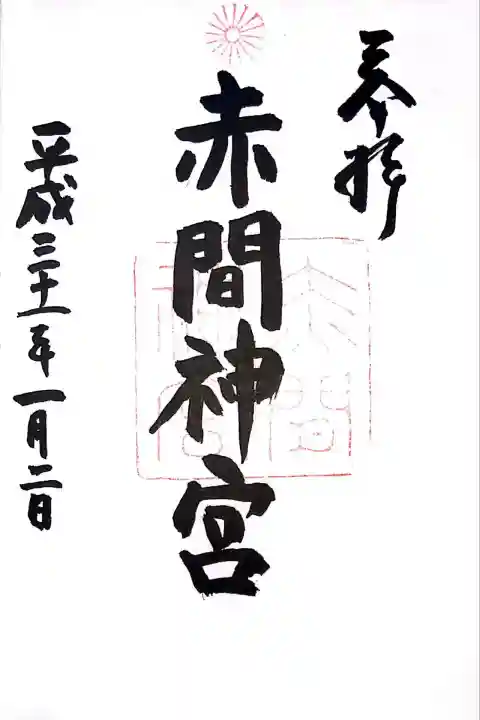 奉拝
赤間神宮
平成三十一年一月二日
赤間
神宮